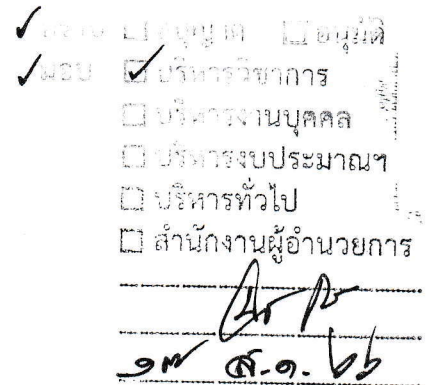 ✓ ทราบ ☐ อนุญาต ☐ อนุมัติ
✓ มอบ ☑ บริหารวิชาการ
☐ บริหารงานบุคคล
☐ บริหารงบประมาณฯ
☐ บริหารทั่วไป
☐ สำนักงานผู้อำนวยการ
๑๗ ส.ค. ๖๖